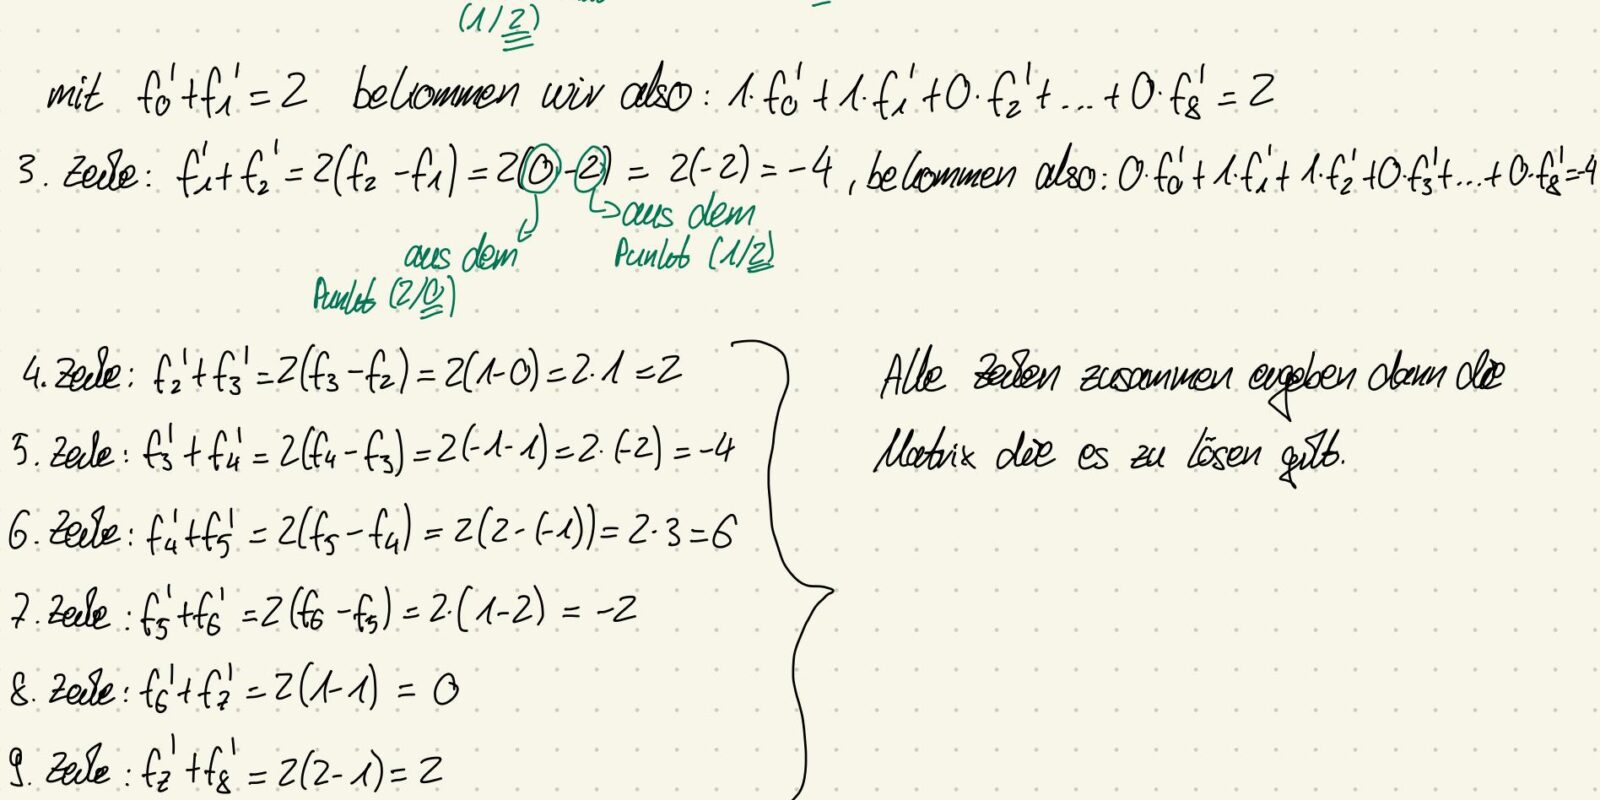 (1/2)
mit f₀' + f₁' = 2 bekommen wir also: 1·f₀' + 1·f₁' + 0·f₂' + ... + 0·f₈' = 2
3. Zeile: f₁' + f₂' = 2(f₂ - f₁) = 2(0 - 2) = 2(-2) = -4, bekommen also: 0·f₀' + 1·f₁' + 1·f₂' + 0·f₃' + ... + 0·f₈' = -4
aus dem
Punkt (1/2)
aus dem
Punkt (2/0)
4. Zeile: f₂' + f₃' = 2(f₃ - f₂) = 2(1-0) = 2·1 = 2
5. Zeile: f₃' + f₄' = 2(f₄ - f₃) = 2(-1-1) = 2·(-2) = -4
6. Zeile: f₄' + f₅' = 2(f₅ - f₄) = 2(2-(-1)) = 2·3 = 6
7. Zeile: f₅' + f₆' = 2(f₆ - f₅) = 2·(1-2) = -2
8. Zeile: f₆' + f₇' = 2(1-1) = 0
9. Zeile: f₇' + f₈' = 2(2-1) = 2
Alle Zeilen zusammen ergeben dann die
Matrix die es zu lösen gilt.